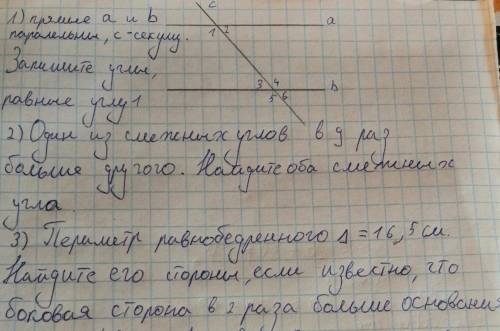 c
1) прямые a и b a
паралельны, c - секущ. 1 2
Запишите углы, 3 4
равные углу 1 b
5 6
2) Один из смежных углов в 9 раз
больше другого. Найдите оба смежных
угла.
3) Периметр равнобедренного Δ = 16,5 см.
Найдите его стороны, если известно, что
боковая сторона в 2 раза больше основания